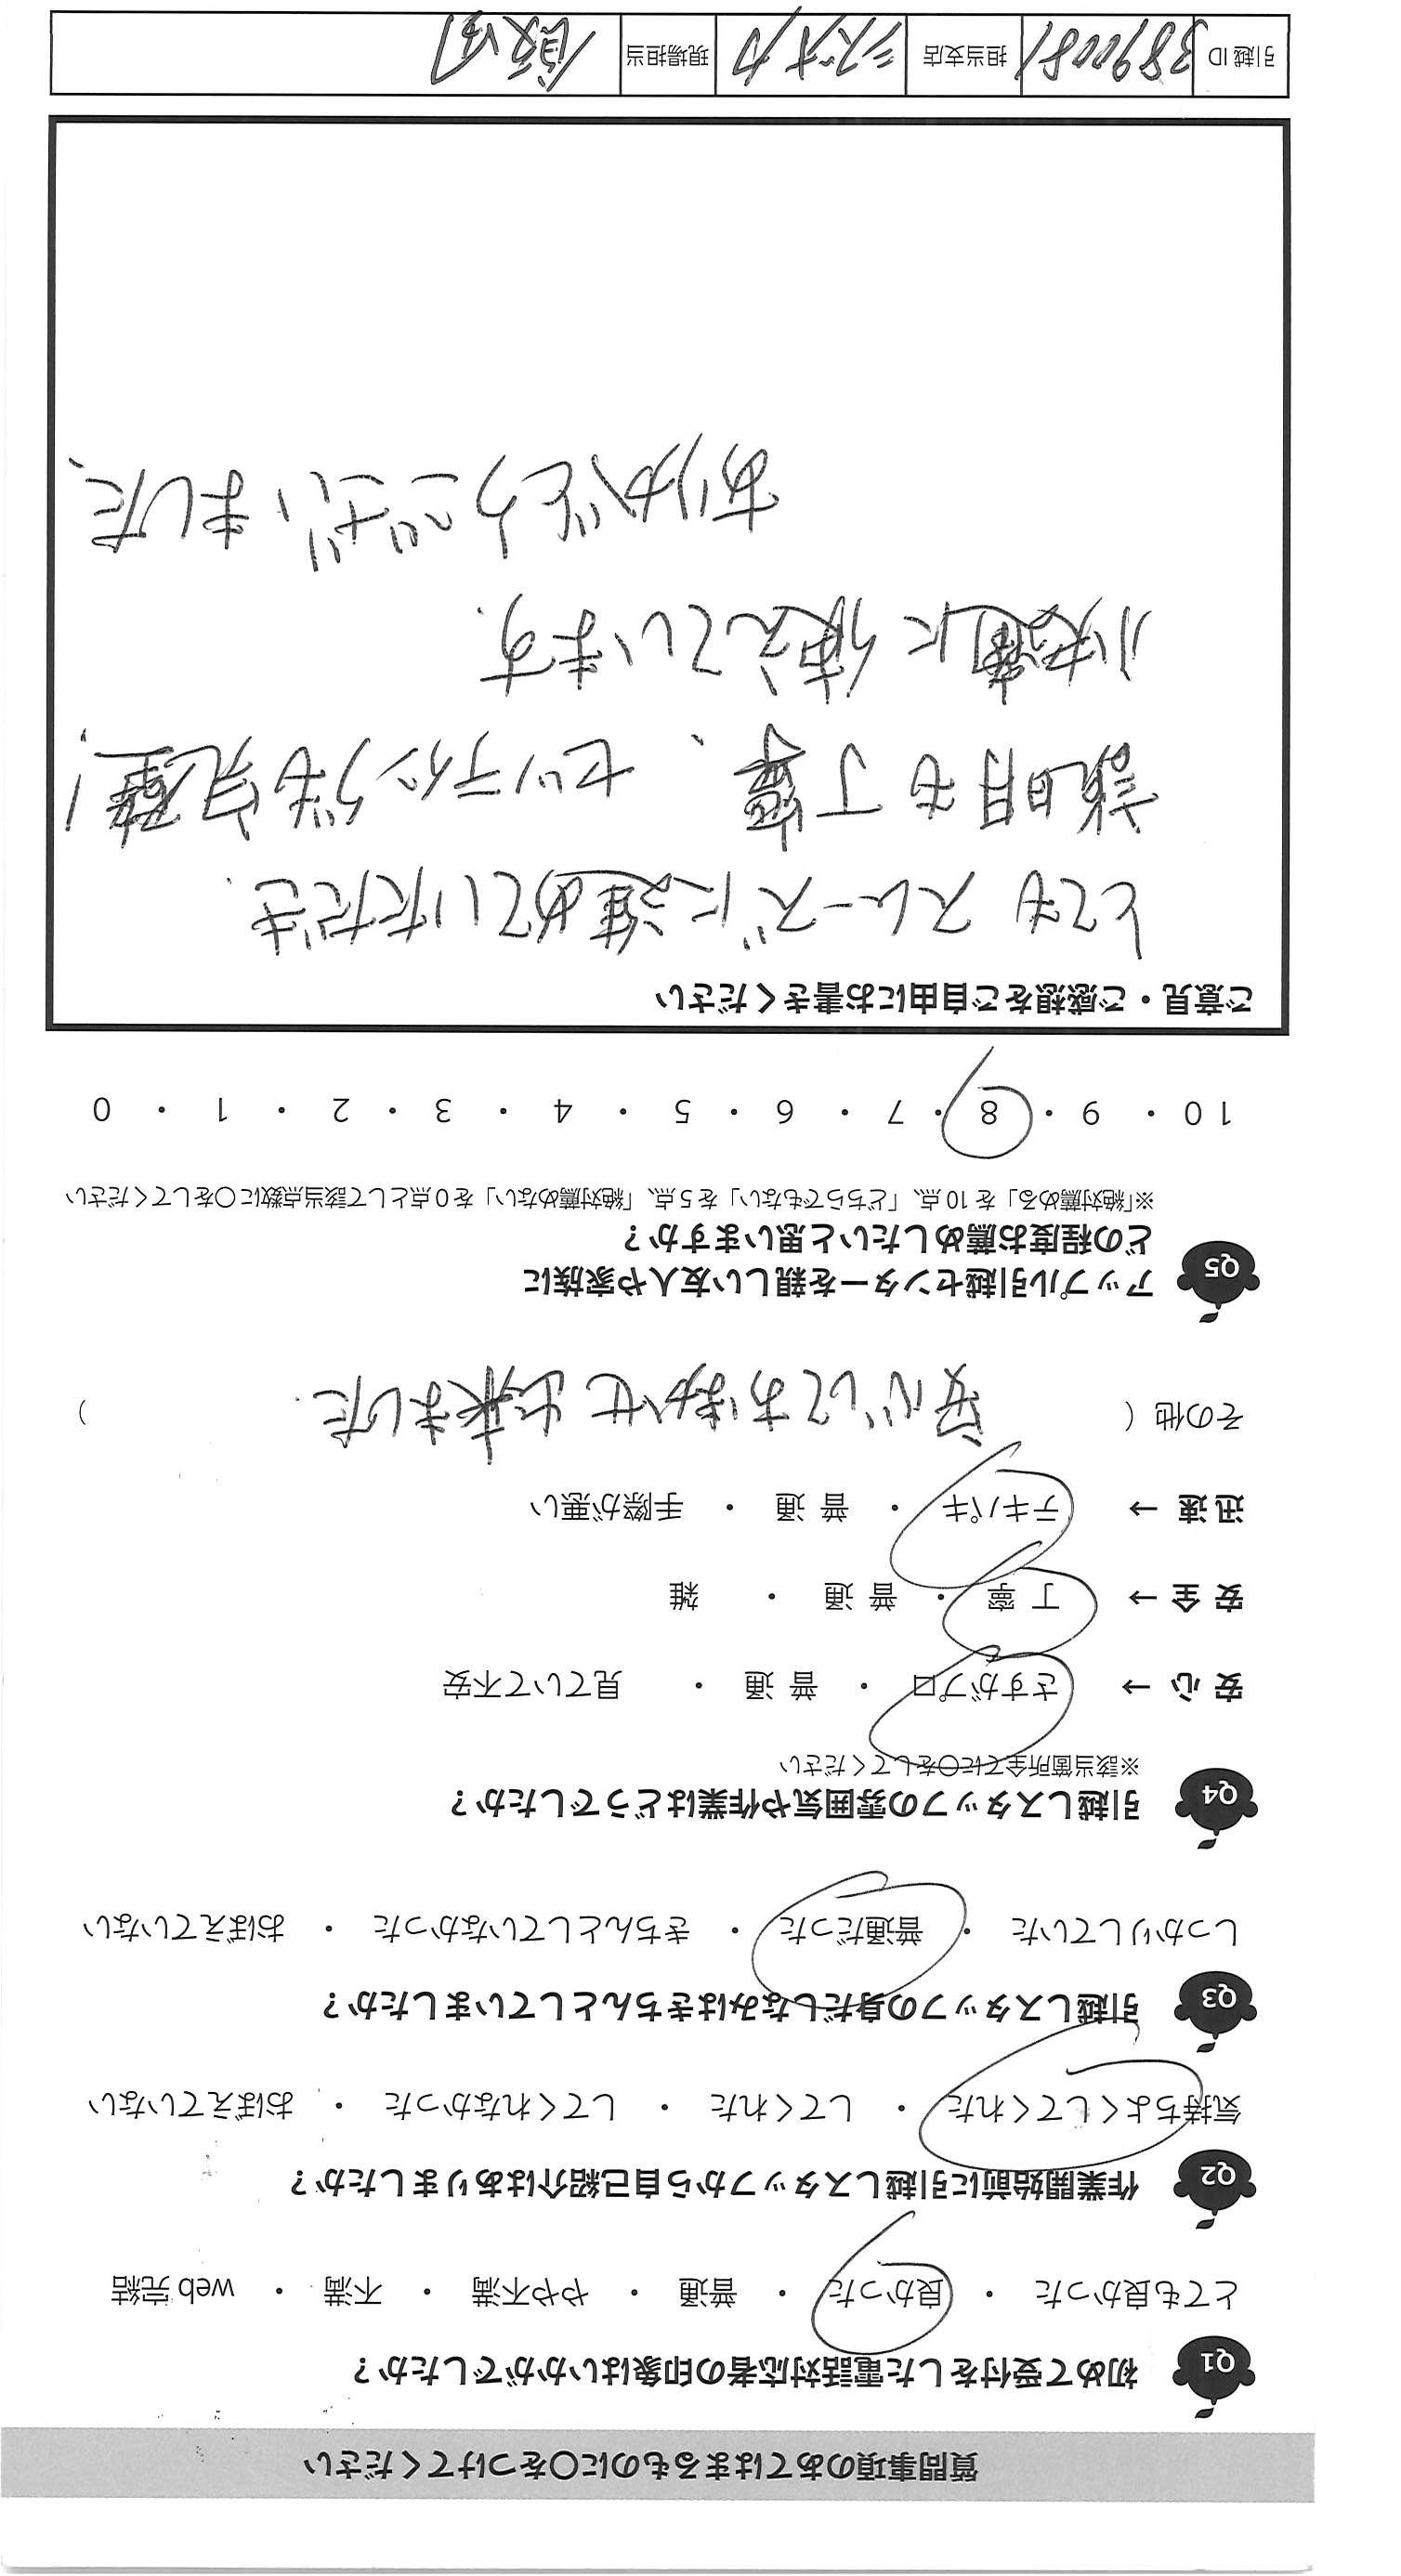 質問事項のあてはまるものに〇をつけてください
Q1 初めて受付をした電話対応者の印象はいかがでしたか？
とても良かった ・ 良かった ・ 普通 ・ やや不満 ・ 不満 ・ web 完結
Q2 作業開始前に引越しスタッフから自己紹介はありましたか？
気持ちよくしてくれた ・ してくれた ・ してくれなかった ・ おぼえていない
Q3 引越しスタッフの身だしなみはきちんとしていましたか？
しっかりしていた ・ 普通だった ・ きちんとしていなかった ・ おぼえていない
Q4 引越しスタッフの雰囲気や作業はどうでしたか？
※該当箇所全てに〇をしてください
安 心 → さすがプロ ・ 普 通 ・ 見ていて不安
安 全 → 丁 寧 ・ 普 通 ・ 雑
迅 速 → テキパキ ・ 普 通 ・ 手際が悪い
その他（ 安心しておまかせ出来ました ）
Q5 アップル引越センターを親しい友人や家族に
どの程度お薦めしたいと思いますか？
※「絶対薦める」を 10 点、「どちらでもない」を 5 点、「絶対薦めない」を 0 点として該当点数に〇をしてください
10 ・ 9 ・ 8 ・ 7 ・ 6 ・ 5 ・ 4 ・ 3 ・ 2 ・ 1 ・ 0
ご意見・ご感想をご自由にお書きください
とてもスムーズに進めていただき
説明も丁寧、セッティングも完璧！
快適に使えています.
ありがとうございました、
引越 ID 3890081 担当支店 シズオカ 現場担当